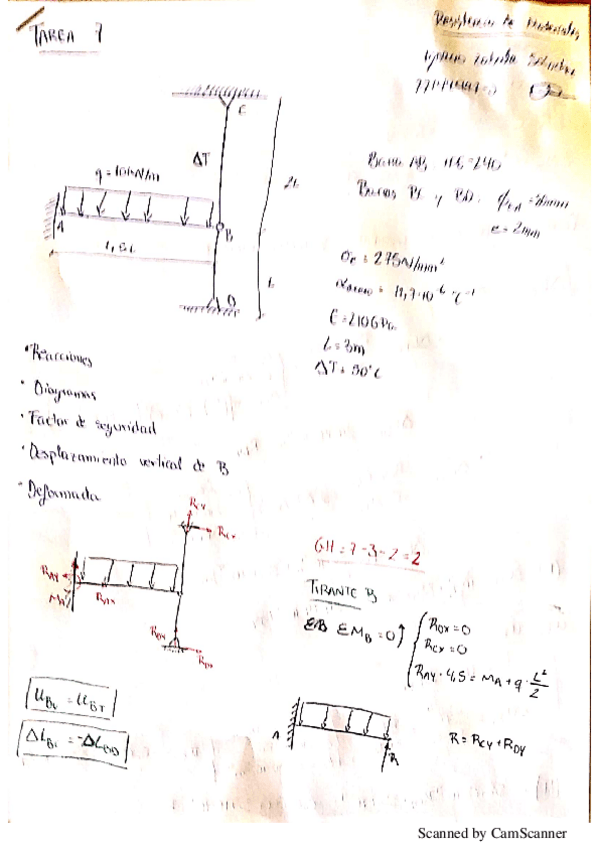 TAREA 7
Resistencia de Materiales
C
ΔT
2L
q = 10 kN/m
A
B
1,5L
L
D
Barra AB, IPE-240
Barras BC y BD:
e = 2mm
σe = 275 N/mm²
E = 210 GPa
L = 3m
· Reacciones
· Diagramas
· Factor de seguridad
· Desplazamiento vertical de B
· Deformada
RCY
RCX
RAY
RAX
MA
RDY
RDX
GH = 7-3-2 = 2
TIRANTE B
ΣMB = 0
RDX = 0
RCX = 0
RAY · 4,5 = MA + q · L²/2
A
R
R = RCY + RDY
ΔLBC = -ΔLBD
Scanned by CamScanner